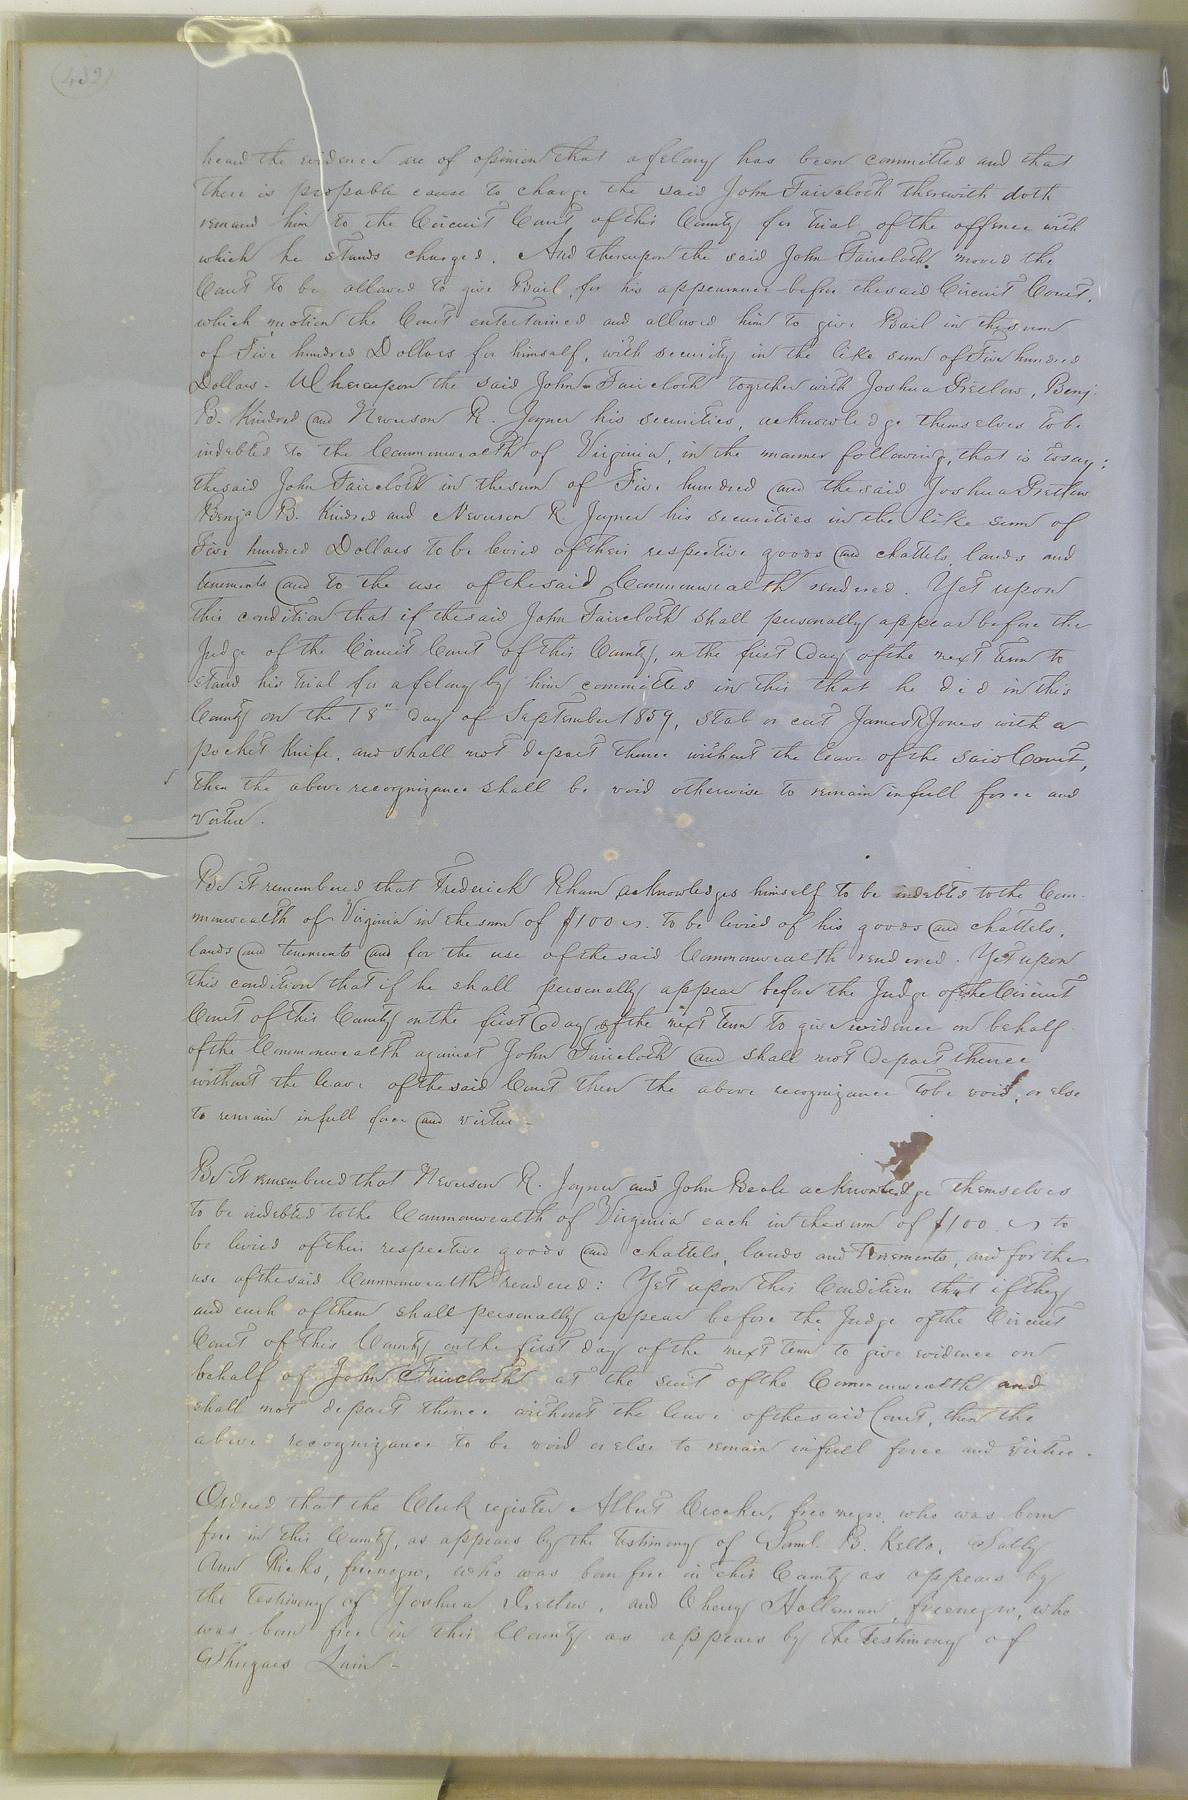 (432)
heard the evidence are of opinion that a felony has been committed and that
there is propable cause to charge the said John Faircloth therewith doth
remand him to the Circuit Court of this County for trial of the offence with
which he stands charged. And thereupon the said John Faircloth, moved the
Court to be allowed to give Bail, for his appearance before the said Circuit Court,
which motion the Court entertained and allowed him to give Bail in the sum
of Five hundred Dollars for himself, with security in the like sum of Five hundred
Dollars - Whereupon the said John Faircloth together with Joshua Pretlow, Benj.
B. Kindred and Newsson R. Joyner his securities, acknowledge themselves to be
indebted to the Commonwealth of Virginia, in the manner following, that is to say:
the said John Faircloth in the sum of Five hundred and the said Joshua Pretlow
Benja B. Kindred and Newsson R. Joyner his securities in the like sum of
Five hundred Dollars to be levied of their respective goods and chattels, lands and
tenements and to the use of the said Commonwealth rendered. Yet upon
this condition that if the said John Faircloth shall personally appear before the
Judge of the Circuit Court of this County, on the first day of the next term to
stand his trial for a felony by him committed in this that he did in this
County on the 18" day of September 1859, stab or cut James R Jones with a
pocket knife, and shall not depart thence without the leave of the said Court,
then the above recognizance shall be void otherwise to remain in full force and
virtue.
Be it remembered that Frederick Rham acknowledges himself to be indebted to the Com-
monwealth of Virginia in the sum of $100 to be levied of his goods and chattels,
lands and tenements and for the use of the said Commonwealth rendered. Yet upon
this condition that if he shall personally appear before the Judge of the Circuit
Court of this County on the first day of the next term to give evidence on behalf
of the Commonwealth against John Faircloth and shall not depart thence
without the leave of the said Court then the above recognizance to be void, or else
to remain in full force and virtue -
Be it remembered that Newsson R. Joyner and John Beale acknowledge themselves
to be indebted to the Commonwealth of Virginia each in the sum of $100 to
be levied of their respective goods and chattels, lands and tenements, and for the
use of the said Commonwealth rendered: Yet upon this Condition that if they
and each of them shall personally appear before the Judge of the Circuit
Court of this County on the first day of the next term to give evidence on
behalf of John Faircloth at the suit of the Commonwealth and
shall not depart thence without the leave of the said Court, then the
above recognizance to be void or else to remain in full force and virtue.
Ordered that the Clerk register Albert Crocker, free negro, who was born
free in this County, as appears by the testimony of Saml. B. Kello, Sally
Ann Ricks, free negro, who was born free in this County as appears by
the testimony of Joshua Pretlow, and Cherry Holloman, free negro, who
was born free in this County as appears by the testimony of
Lain -